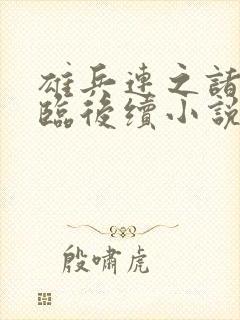 雄兵連之諸
臨後續小說
殷嘯虎